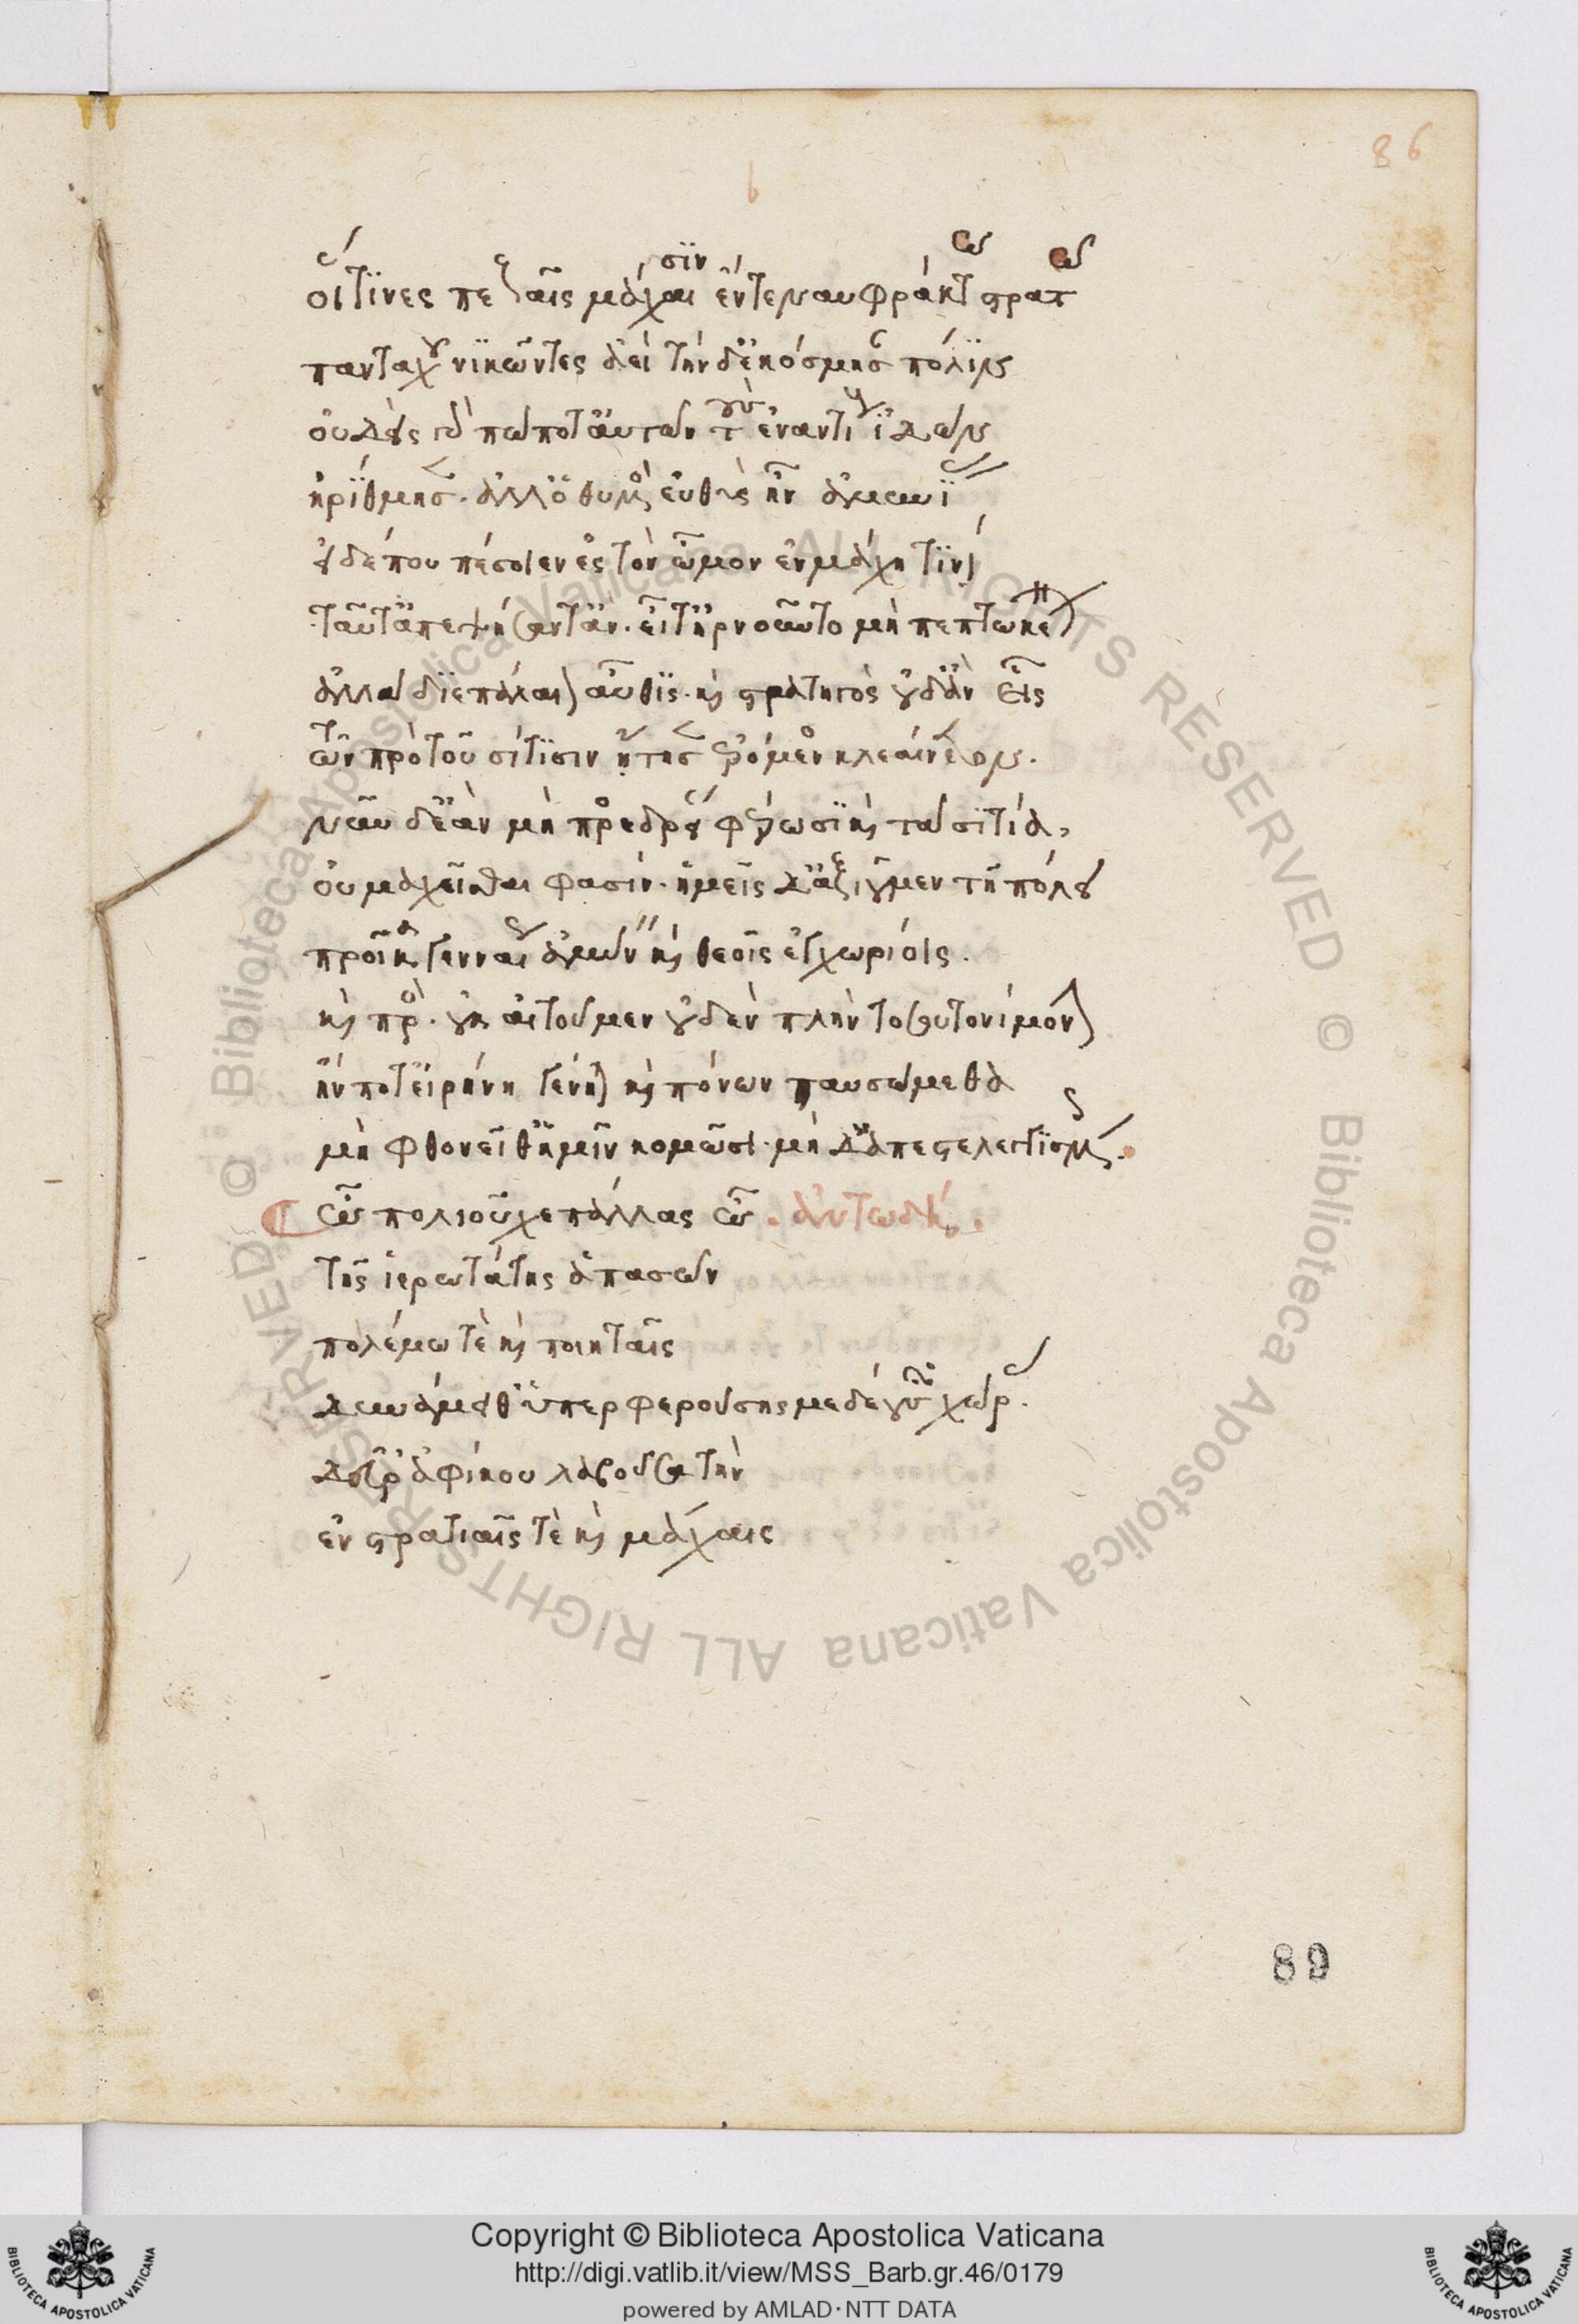 86
οἵτινες πεζαῖς μάχαισιν ἔν τε ναυφράκτω στρατῶ
πανταχοῦ νικῶντες ἀεὶ τήνδ' ἐκόσμησαν πόλιν
οὐδεὶς γὰρ πώποτ' αὐτῶν τοὺς ἐναντίους ἰδὼν
ἠρίθμησεν. ἀλλ' ὁ θυμὸς εὐθὺς ἦν ἀμυνίας
εἰ δέ που πέσοιεν ἐς τὸν ὦμον ἐν μάχη τινί
ταῦτ' ἀπεψήσαντ' ἄν. εἶτ' ἠρνοῦντο μὴ πεπτωκέναι
ἀλλὰ διεπάλαιον αὖθις. καὶ στρατηγὸς οὐδ' ἂν εἷς
τῶν πρὸ τοῦ σίτισιν ᾔτησ' ἐρόμενος κλεαίνετον.
νῦν δ' ἐὰν μὴ προεδρίαν φέρωσι καὶ τὰ σιτία,
οὐ μαχεῖσθαι φασίν. ἡμεῖς δ' ἀξιοῦμεν τῆ πόλει
προῖκα γενναίως ἀμύνειν καὶ θεοῖς ἐγχωρίοις.
καὶ πρὸς. οὐκ αἰτοῦμεν οὐδὲν πλὴν τοσουτονὶ μόνον
ἤν ποτ' εἰρήνη γένηται καὶ πόνων παυσώμεθα
μὴ φθονεῖθ' ἡμῖν κομῶσι. μὴ δ' ἀπεστλεγγισμένοις.
ὦ πολιοῦχε πάλλας ὦ. ἀντωδή.
τῆς ἱερωτάτης ἁπασῶν
πολέμω τὲ καὶ ποιηταῖς
δυνάμει θ' ὑπερφερούσης μεδέουσα χώρας.
δεῦρ' ἀφίκου λαβοῦσα τὴν
ἐν στρατιαῖς τὲ καὶ μάχαις
89
© Biblioteca Apostolica Vaticana ALL RIGHTS RESERVED © Biblioteca Apostolica Vaticana ALL RIGHTS RESERVED
Copyright © Biblioteca Apostolica Vaticana
http://digi.vatlib.it/view/MSS_Barb.gr.46/0179
powered by AMLAD·NTT DATA
BIBLIOTECA APOSTOLICA VATICANA
BIBLIOTECA APOSTOLICA VATICANA